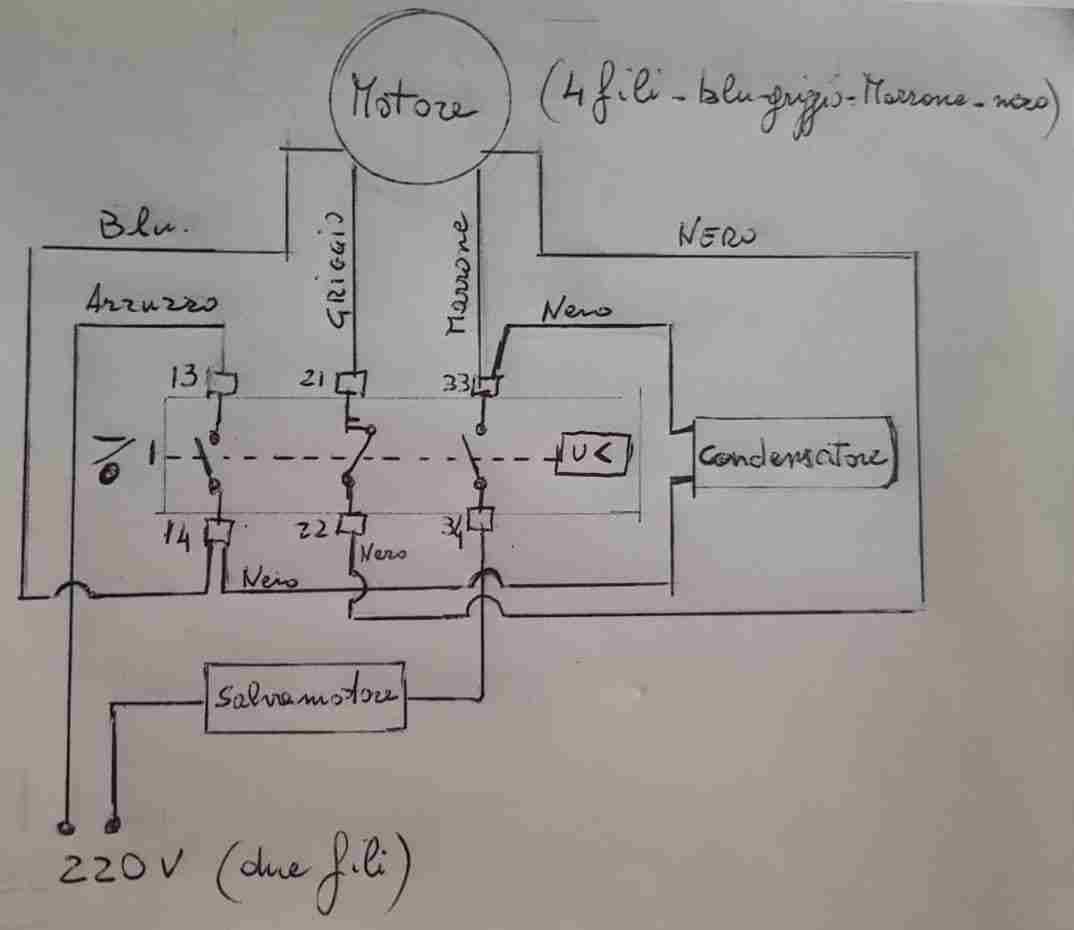 Motore
(4 fili - blu-grigio-Marrone-nero)
Blu.
GRIGGIO
Marrone
NERO
Azzurro
Nero
13
21
33
0
1
U<
Condensatore
14
22
34
Nero
Nero
Salvamotore
220V (due fili)